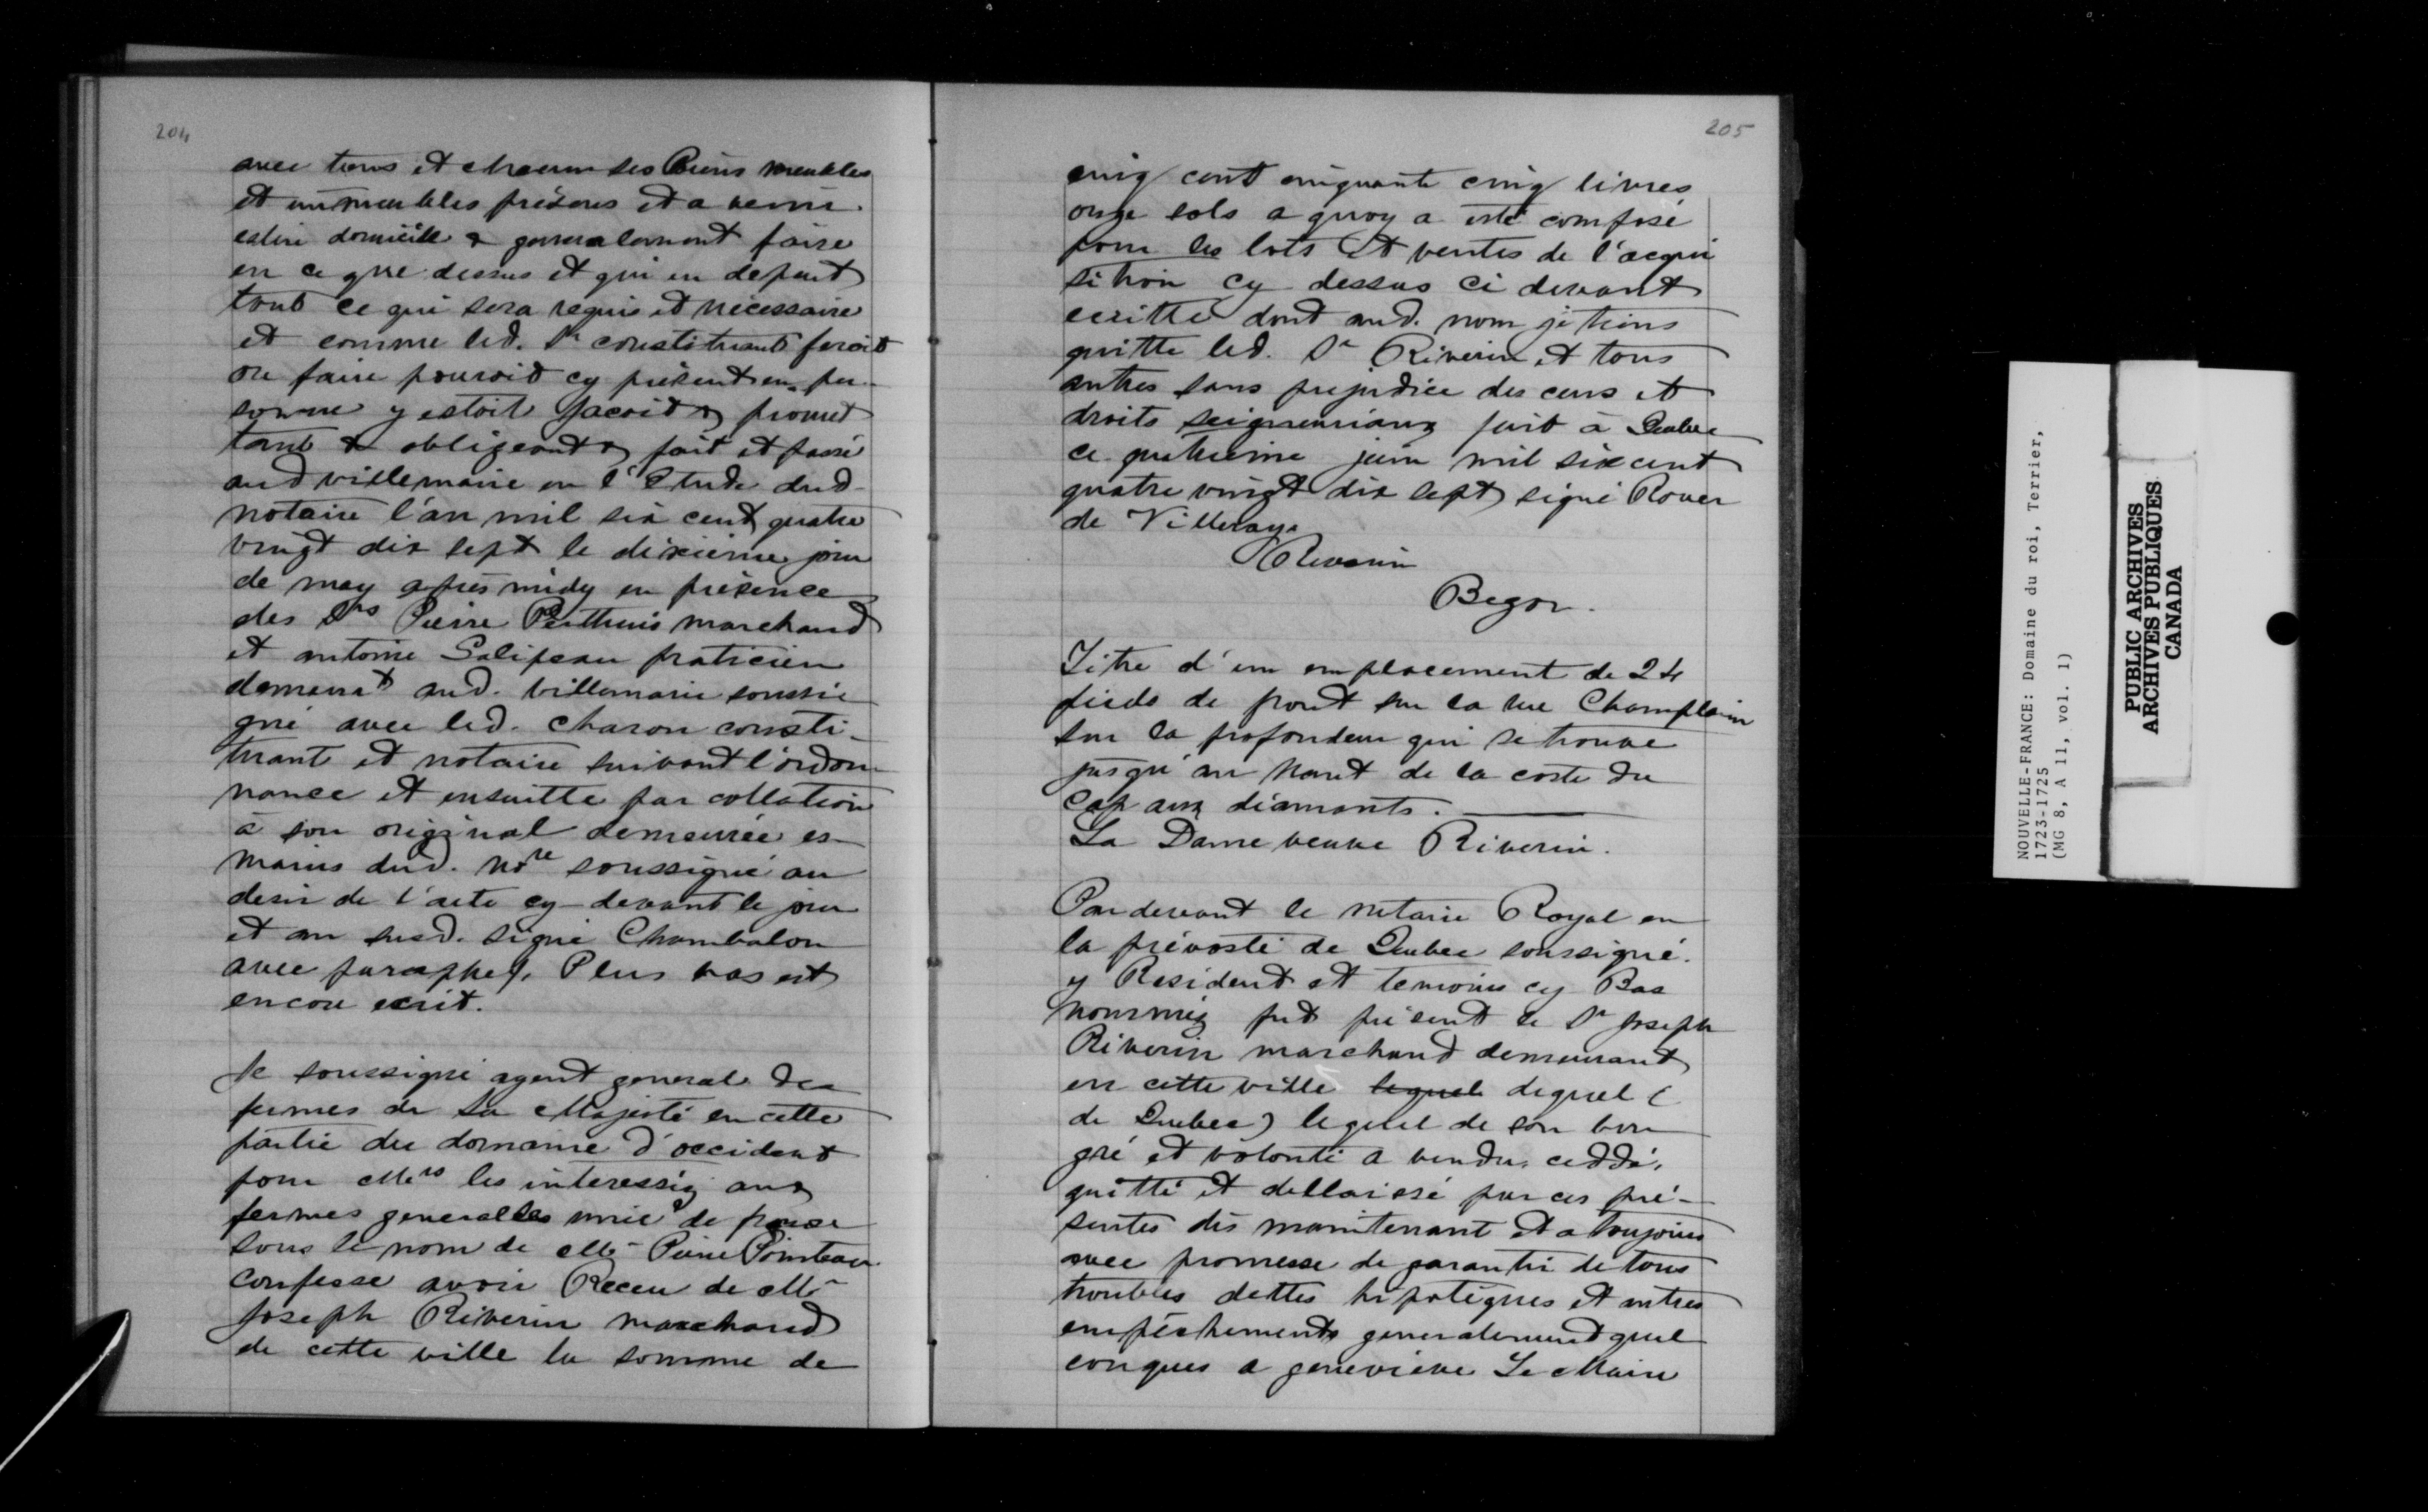 204
avec tous et chacun ses Biens meubles
et immeubles présens et a venir.
eslire domicille & generalement faire
en ce que dessus et qui en depent
tout ce qui sera requis et nécessaire
et comme led. Sr constituant feroit
ou faire pouroit cy présent en per-
sonne y estoit Jacoit & promet
tant & obligeant & fait et passé
aud villemarie en l'Etude dud
notaire l'an mil six cent quatre
vingt dix sept le dixieme jour
de may apres midy en présence
des Srs Pierre Perthuis marchand
et antoine Galipeau praticien
demeurt aud. villemarie soussi
gné avec led. Charon consti-
tuant et notaire suivant l'ordon-
nance et ensuitte par collation
à son original demeurée es-
mains dud. Nore soussigné au
desir de l'acte cy-devant le jour
et an susd. signé Chambalon
avec paraphe/. Plus bas est
encore ecrit.
Je soussigné agent general des
fermes de Sa Majesté en cette
partie du domaine d'occident
pour Mrs les interessez aux
fermes generalles unies de france
sous le nom de Mr Pierre Pointeau
confesse avoir Receu de Mr
Joseph Riverin marchand
de cette ville la somme de
205
cinq cent cinquante cinq livres
onze sols a quoy a esté composé
pour les lots et ventes de l'acqui
sition cy dessus ci devant
ecritte dont aud. nom je tiens
quitte led. Sr Riverin et tous
autres sans prejudice des cens et
droits seigneuriaux fait à Quebec
ce quatrieme juin mil six cent
quatre vingt dix sept signé Rouer
de Villeraye
Riverin
Begon.
Titre d'un emplacement de 24
pieds de front sur la rue Champlain
sur la profondeur qui se trouve
jusqu'au haut de la coste du
Cap aux diamants.
La Dame veuve Riverin.
Par devant le notaire Royal en
la prévosté de Quebec soussigné.
y Resident et temoins cy Bas
nommez fut présent le Sr Joseph
Riverin marchand demeurant
en cette ville lequel diquel (
de Quebec) lequel de son bon
gré et volonté a vendu, ceddé,
quitté et dellaissé par ces pré-
sentes dès maintenant et a toujours
avec promesse de garantir de tous
troubles dettes hipoteques et autres
empéchements generalement quel
conques a geneviève Le Maire
NOUVELLE-FRANCE: Domaine du roi, Terrier,
1723-1725
(MG 8, A 11, vol. 1)
PUBLIC ARCHIVES
ARCHIVES PUBLIQUES
CANADA